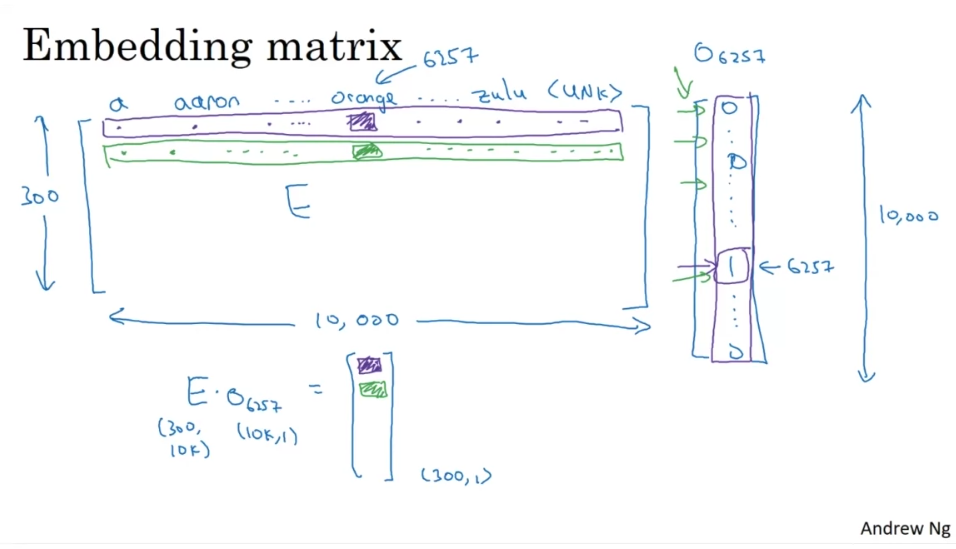 Embedding matrix
6257
O6257
a aaron .... orange .... zulu <UNK>
0
0
300
E
10,000
1
6257
10,000
0
E · O6257 =
(300, 10K)
(10K, 1)
(300, 1)
Andrew Ng